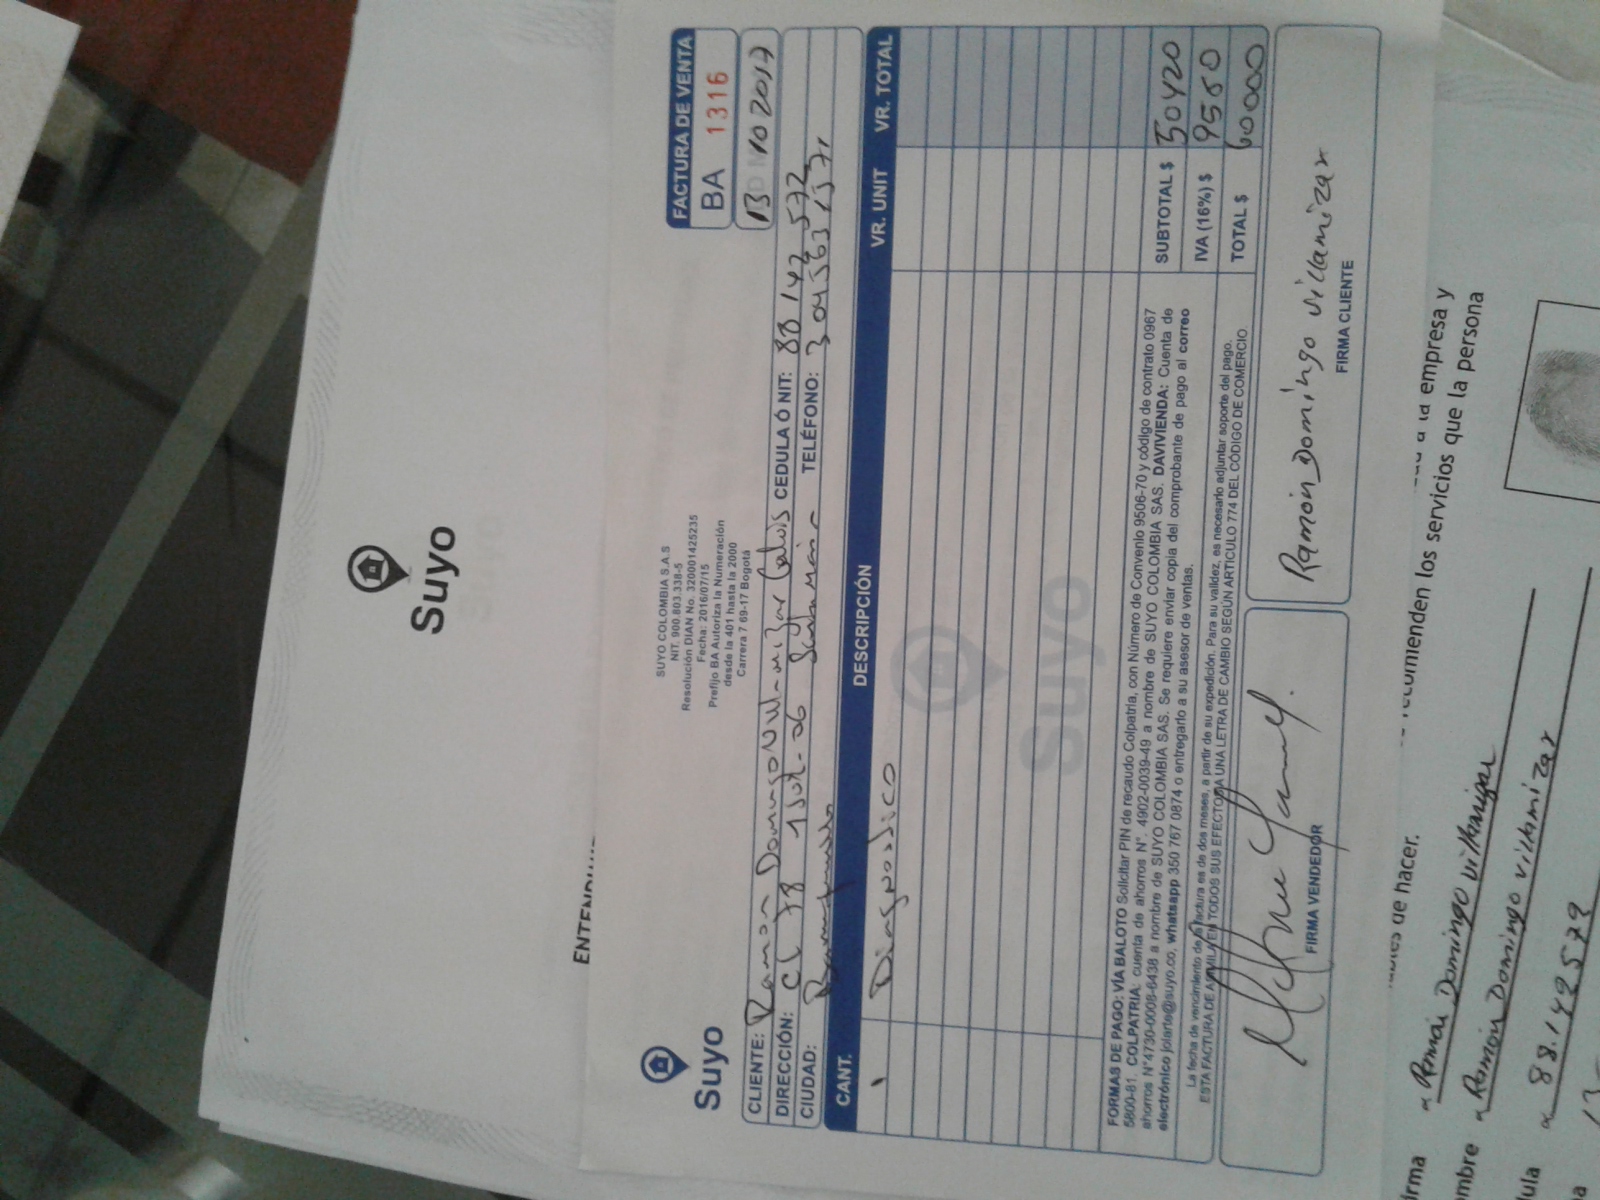 Suyo
ENTENDI
Suyo
SUYO COLOMBIA S.A.S
NIT. 900.803.338-5
Resolución DIAN No. 320001425235
Fecha: 2016/07/15
Prefijo BA Autoriza la Numeración
desde la 401 hasta la 2000
Carrera 7 69-17 Bogotá
FACTURA DE VENTA
BA 1316
13 10 2017
CLIENTE: Ramon Domingo Villamizar CEDULA Ó NIT: 88 142 572
DIRECCIÓN: CL 78 TELÉFONO:
CIUDAD: Barranquilla
CANT. DESCRIPCIÓN VR. UNIT VR. TOTAL
1 Diagnostico
Suyo
FORMAS DE PAGO: VÍA BALOTO Solicitar PIN de recaudo Colpatria, con Número de Convenio 9506-70 y código de contrato 0967
5800-81. COLPATRIA: cuenta de ahorros N°. 4902-0039-49 a nombre de SUYO COLOMBIA SAS. DAVIVIENDA: Cuenta de
ahorros N°4730-0008-6438 a nombre de SUYO COLOMBIA SAS. Se requiere enviar copia del comprobante de pago al correo
electrónico jolarte@suyo.co, whatsapp 350 767 0874 o entregarlo a su asesor de ventas.
La fecha de vencimiento de la factura es de dos meses, a partir de su expedición. Para su validez, es necesario adjuntar soporte del pago.
ESTA FACTURA DE ASIMILA EN TODOS SUS EFECTOS A UNA LETRA DE CAMBIO SEGÚN ARTICULO 774 DEL CÓDIGO DE COMERCIO.
SUBTOTAL $ 50420
IVA (16%) $ 9580
TOTAL $ 60000
FIRMA VENDEDOR
Ramón Domingo villamizar
FIRMA CLIENTE
de hacer.
recomienden los servicios que la persona
a la empresa y
irma Ramón Domingo villamizar
ombre Ramón Domingo villamizar
dula 88.142572
13-